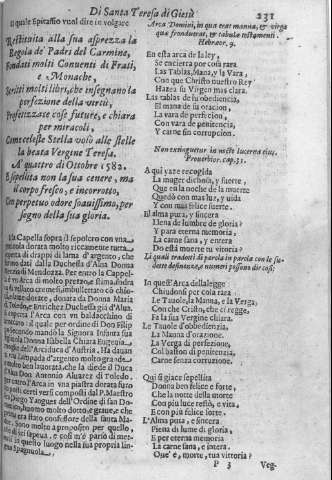 Di Santa Teresa di Giesù
231
il quale Epitaffio vuol dire in volgare
Restituita alla sua asprezza la
Regola de' Padri del Carmine,
Fondati molti Conventi di Frati,
e Monache,
Scritti molti libri, che insegnano la
perfezione della virtù,
Profetizzate cose future, e chiara
per miracoli,
Come celeste Stella volò alle stelle
la beata Vergine Teresa.
A quattro di Ottobre 1582.
E sepolta non la sua cenere, ma
il corpo fresco, e incorrotto,
Con perpetuo odore soavissimo, per
segno della sua gloria.
La Capella sopra il sepolcro con una
dorata molto riccamente
di drappi di lama d'argento, che
dalla Duchessa d'Alva Donna
di Mendozza. Per entro la Cappel-
Arca di molto prezzo
donata da Donna Maria
di Toledo Enrichez Duchessa già d'Alva.
l'Arca con un baldacchino
il quale per ordine di Don Filip
Secondo mandò la Signora Infanta sua
Donna Isabella Chiara Eugenia
dell'Arciduca d'Austria. Ha davan
una Lampada d'argento molto grande
ben lavorata, che la diede il Duca
d'Alva Don Antonio Alvarez di Toledo.
l'Arca in una piastra dorata furo
certi versi composti dal P. Maestro
Diego Yangues dell'Ordine di san Do-
huomo molto dotto, e grave, e che
era stato confessore della santa Ma-
Sono molto a proposito per quello,
di lei sapeva, e così m'è parso di met-
in questo luogo nella sua propria lin-
Spagnuola.
Arca Domini, in qua erat manna, & virga
quæ fronduerat, & tabulæ testamenti.
Hebraor. 9.
En esta arca de la ley,
Se encierra por cosa rara
Las Tablas, Mana, y la Vara,
Con que Christo nuestro Rey
Hazea su Virgen mas clara.
Las tablas de su obediencia,
El mana de su oracion,
La vara de perfecion,
Con vara de penitencia,
Y carne sin corrupcion.
Non extinguetur in nocte lucerna eius.
Proverbior. cap. 31.
Aqui yaze recogida
La muger dichosa, y fuerte,
Que en la noche de la muerte
Quedò con mas luz, y vida
Y con mas felice suerte.
El alma pura, y sincera
Llena de lumbre de gloria?
Y para eterna memoria
La carne sana, y entera
Do està muerte tu vitoria?
Li quali tradotti di parola in parola con le su-
dette desinenze, e numeri possono dir così:
In quest'Arca della legge
Chiudonsi per cosa rara
Le Tavole, la Manna, e la Verga,
Con che Cristo, che ci regge,
Fa la sua Vergine chiara.
Le Tavole d'obedienzia,
La Manna d'orazione.
La Verga di perfezione,
Col baston di penitenzia,
Carne senza corruzione.
Qui si giace sepellita
Donna ben felice e forte,
Che la notte della morte
Con più luce restò, e vita,
E con più felice sorte.
L'Alma pura, e sincera
Piena di lume di gloria,
E per eterna memoria
La carne sana, e intera.
Que'è, morte, tua vittoria?
P 3
Veg-